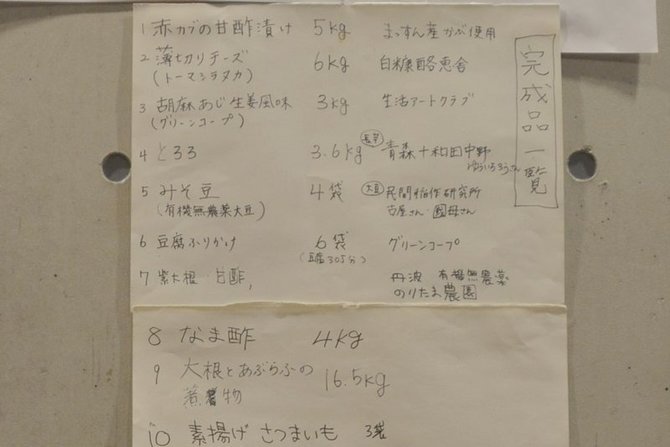 完成品一覧
1 赤カブの甘酢漬け 5kg まっすん産かぶ使用
2 薄切りチーズ 6kg 白糠酪恵舎
(トーマシラヌカ)
3 胡麻あじ生姜風味 3kg 生活アートクラブ
(グリーンコープ)
4 とろろ 3.6kg 長芋 青森十和田中野
ゆういちろうさん
5 みそ豆 4袋 大豆 民間稲作研究所
(有機無農薬大豆) 古屋さん・圓母さん
6 豆腐ふりかけ 6袋 グリーンコープ
(豆腐305分)
7 紫大根・甘酢, 丹波 有機無農薬
のりたま農園
8 なま酢 4kg
9 大根とあぶらふの 16.5kg
煮物
10 素揚げさつまいも 3袋